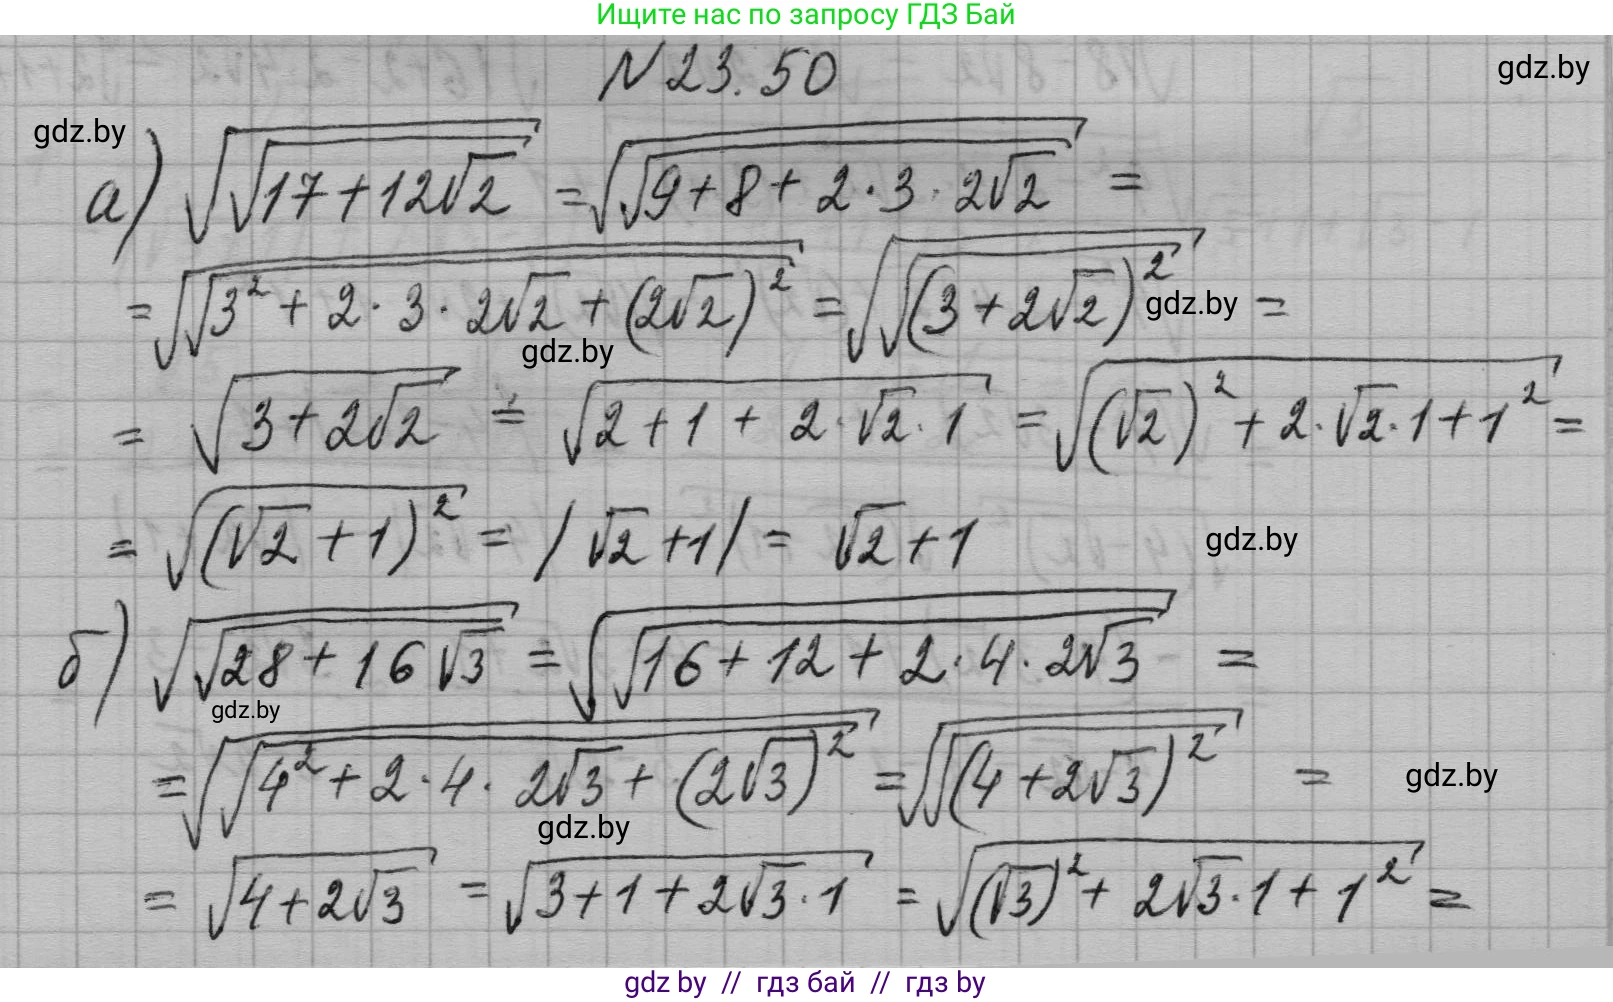 Ищите нас по запросу ГДЗ Бай
№23.50
gdz.by
gdz.by
а) √√17+12√2 = √√9+8+2·3·2√2 =
= √√3²+2·3·2√2+(2√2)² = √√(3+2√2)² =
gdz.by
gdz.by
= √3+2√2 = √2+1+2·√2·1 = √(√2)²+2·√2·1+1² =
= √(√2+1)² = |√2+1| = √2+1
gdz.by
б) √√28+16√3 = √√16+12+2·4·2√3 =
gdz.by
= √√4²+2·4·2√3+(2√3)² = √√(4+2√3)² =
gdz.by
gdz.by
= √4+2√3 = √3+1+2√3·1 = √(√3)²+2√3·1+1² =
gdz by // гдз бай // гдз by